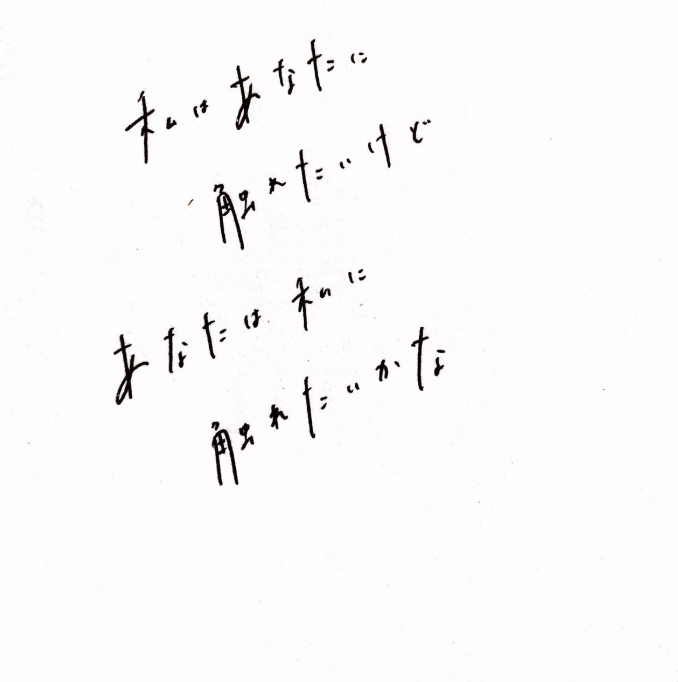 私はあなたに
触れたいけど
あなたは私に
触れたいかな